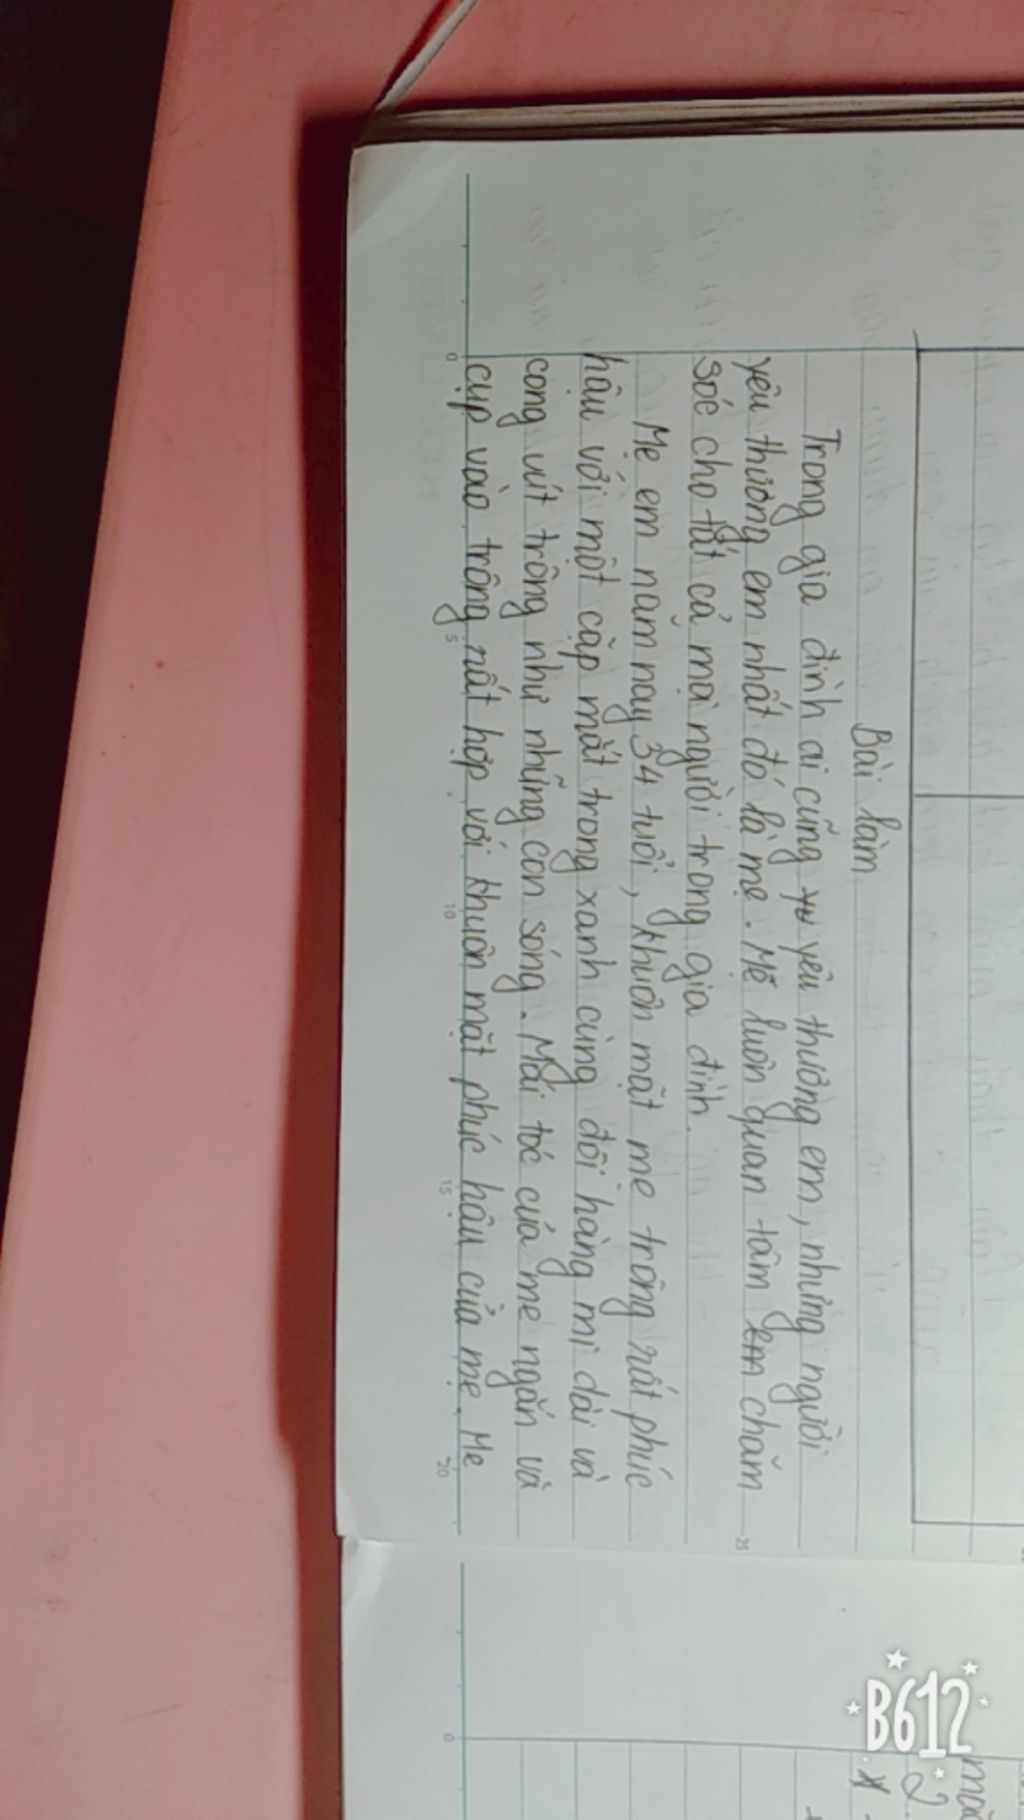 Bài làm
Trong gia đình ai cũng yêu thương em, nhưng người
yêu thương em nhất đó là mẹ. Mẹ luôn quan tâm em chăm
sóc cho tất cả mọi người trong gia đình.
Mẹ em năm nay 34 tuổi, khuôn mặt mẹ trông rất phúc
hậu với một cặp mắt trong xanh cùng đôi hàng mi dài và
cong vút trông như những con sóng. Mái tóc của mẹ ngắn và
cụp vào trông rất hợp với khuôn mặt phúc hậu của mẹ. Mẹ
0
5
10
15
20
25
0
B612